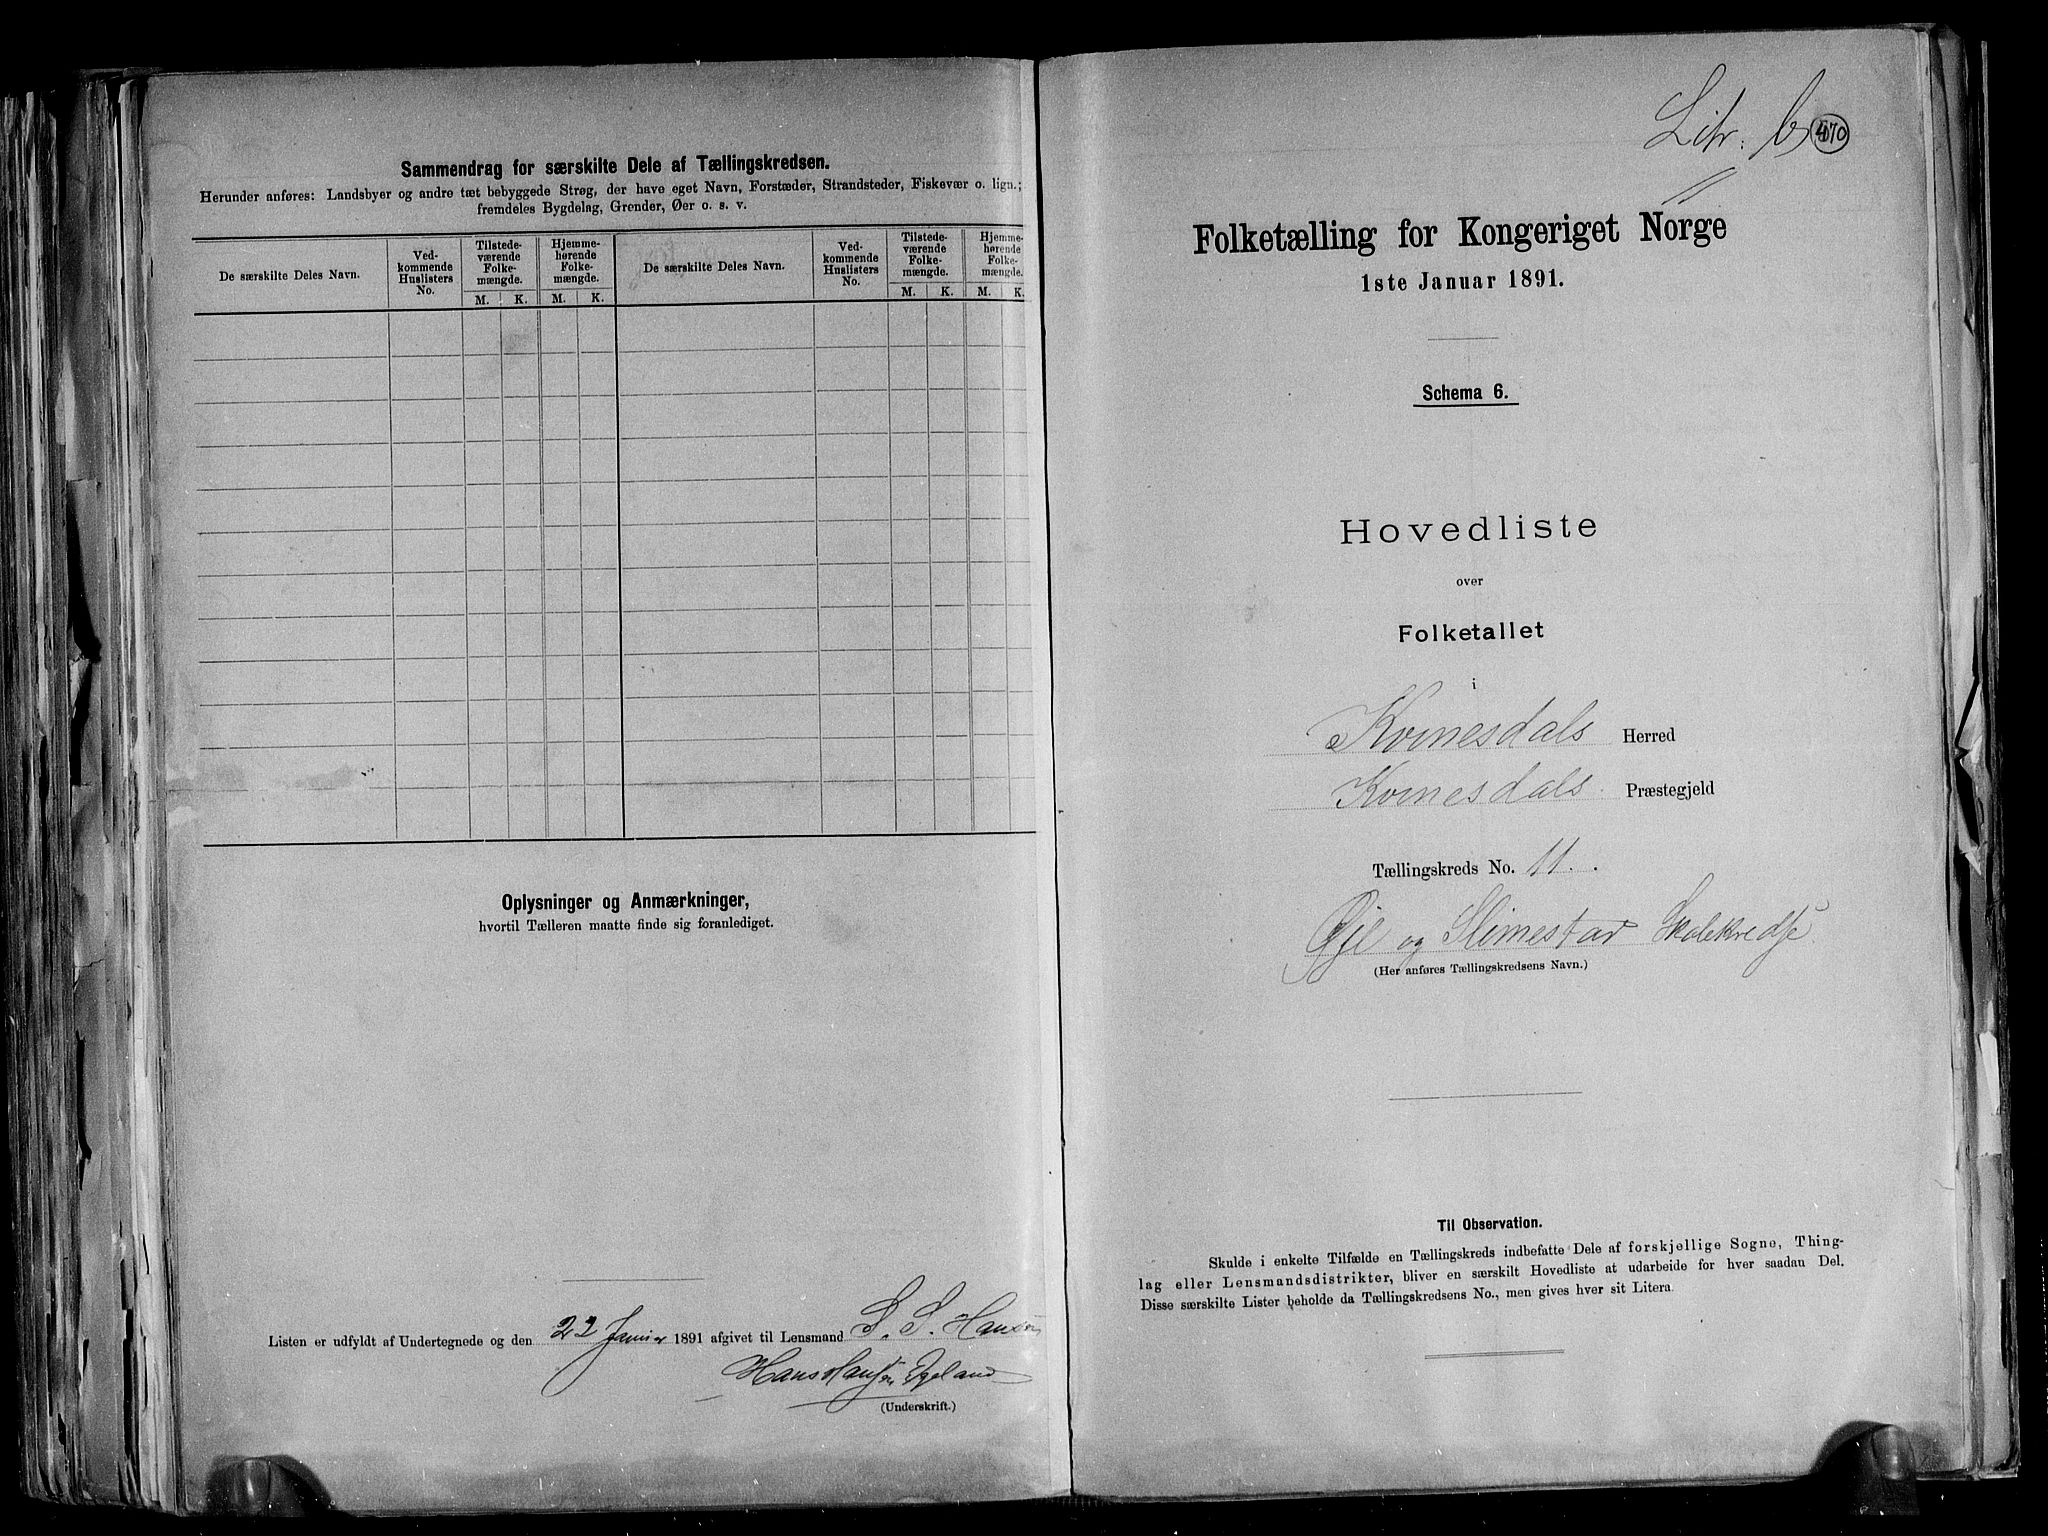 Sammendrag for særskilte Dele af Tællingskredsen.
Herunder anføres: Landsbyer og andre tæt bebyggede Strøg, der have eget Navn, Forstæder, Strandsteder, Fiskevær o. lign.;
fremdeles Bygdelag, Grender, Øer o. s. v.
De særskilte Deles Navn.
Ved-
kommende
Huslisters
No.
Tilstede-
værende
Folke-
mængde.
Hjemme-
hørende
Folke-
mængde.
M. K. M. K.
De særskilte Deles Navn.
Ved-
kommende
Huslisters
No.
Tilstede-
værende
Folke-
mængde.
Hjemme-
hørende
Folke-
mængde.
M. K. M. K.
Oplysninger og Anmærkninger,
hvortil Tælleren maatte finde sig foranlediget.
Listen er udfyldt af Undertegnede og den 22 Januar 1891 afgivet til Lensmand S. S. Hansen
Hans Hansen Egeland
(Underskrift.)
Litr. b
470
Folketælling for Kongeriget Norge
1ste Januar 1891.
Schema 6.
Hovedliste
over
Folketallet
i
Kvinesdals Herred
Kvinesdals Præstegjeld
Tællingskreds No. 11.
Øje og Slimestad Skolekredse
(Her anføres Tællingskredsens Navn.)
Til Observation.
Skulde i enkelte Tilfælde en Tællingskreds indbefatte Dele af forskjellige Sogne, Thing-
lag eller Lensmandsdistrikter, bliver en særskilt Hovedliste at udarbeide for hver saadan Del.
Disse særskilte Lister beholde da Tællingskredsens No., men gives hver sit Litera.